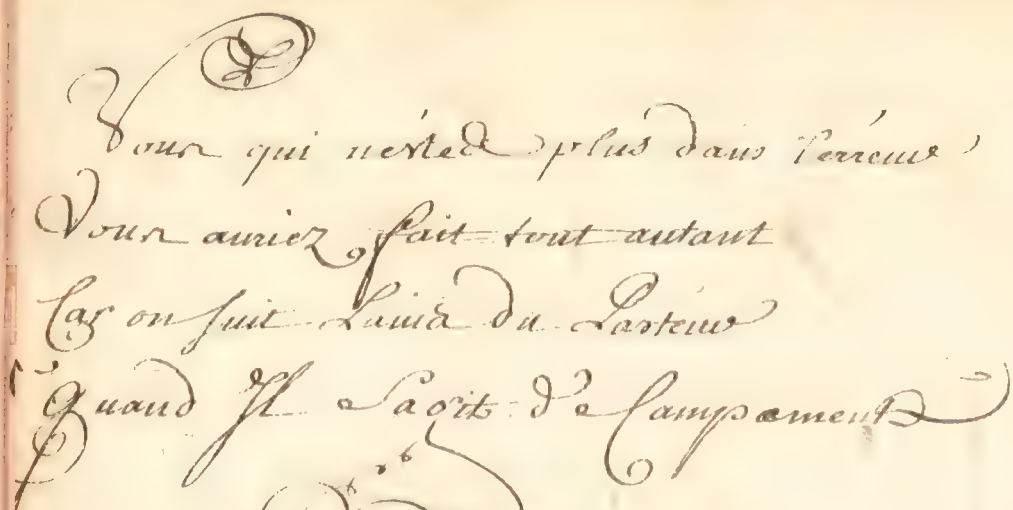 Vous qui nestes plus dans l'erreur
Vous auriez fait tout autant
Car on suit Lavis du Pasteur
Quand Il Sagit de Campements